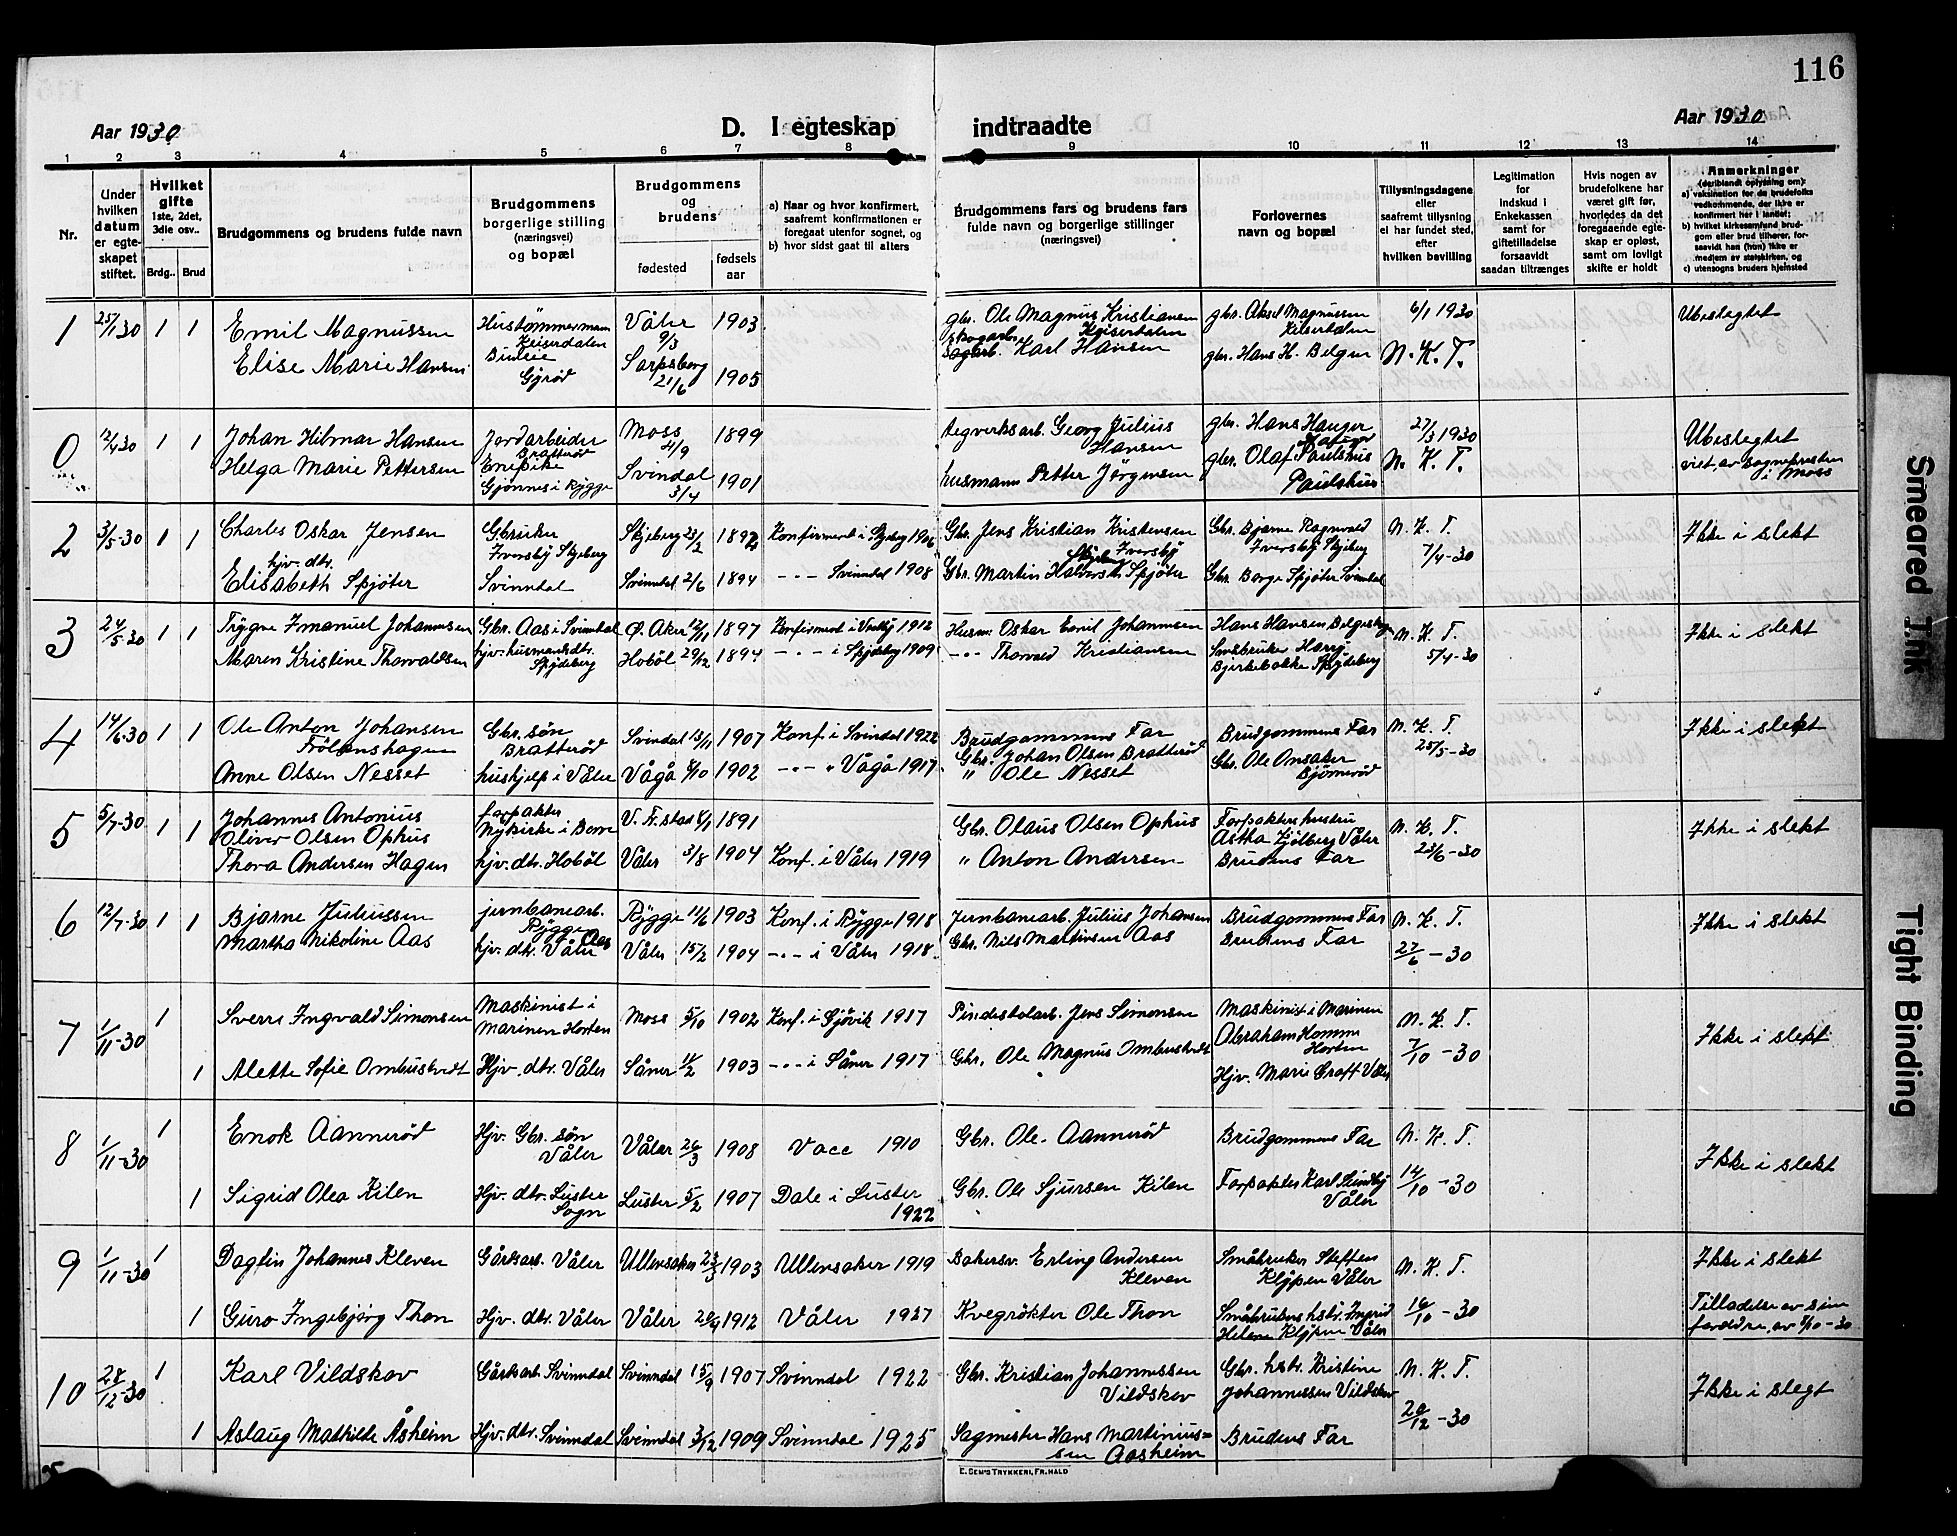 116
Aar 1930
D. I egteskap indtraadte
Aar 1930
1 2 3 4 5 6 7 8 9 10 11 12 13 14
Nr.
Under hvilken datum er egteskapet stiftet.
Hvilket gifte
1ste, 2det, 3die osv..
Brdg.. Brud
Brudgommens og brudens fulde navn
Brudgommens borgerlige stilling (næringsvei) og bopæl
Brudgommens og brudens
fødested
fødsels aar
a) Naar og hvor konfirmert, saafremt konfirmationen er foregaat utenfor sognet, og
b) hvor sidst gaat til alters
Brudgommens fars og brudens fars fulde navn og borgerlige stillinger (næringsvei)
Forlovernes navn og bopæl
Tillysningsdagene eller saafremt tillysning ei har fundet sted, efter hvilken bevilling
Legitimation for indskud i Enkekassen samt for giftetilladelse forsaavidt saadan tiltrænges
Hvis nogen av brudefolkene har været gift før, hvorledes da det foregaaende egteskap er opløst, samt om lovligt skifte er holdt
Anmerkninger
(deriblandt oplysning om):
a) vaksination for de brudefolks vedkommende, der ikke er konfirmert her i landet;
b) hvilket kirkesamfund brudgom eller brud tilhører, forsaavidt han (hun) ikke er medlem av statskirken, og
c) utensogns bruders hjemsted
1 25/1 30 1 1 Emil Magnussen Hustømmermann Keiserdalen Våler 9/3 1903 gbr. Ole Magnus Kristiansen Keiserdalen gbr. Aksel Magnussen Keiserdalen 6/1 1930 Ubeslegtet
Elise Marie Hansen Gyrød Sarpsborg 21/6 1905 Karl Hansen gbr. Hans H. Belgen N. K. T.
0 12/4 30 1 1 Johan Hilmar Hansen Jordarbeider Bratterød Moss 4/9 1899 tegverksarb. Georg Julius Hansen gbr. Hans Hauger 27/3 1930 Ubeslegtet
Helga Marie Pettersen Enepike Gjønnes i Rygge Svindal 3/4 1901 husmann Petter Jørgensen gbr. Olaf Paulshus Paulshus N. K. T. viet av sognepresten i Moss
2 3/5-30 1 1 Charles Oskar Jensen Gbruker Iversby Skjeberg Skjeberg 23/2 1892 Konfirmert i Skjeberg 1906 Gbr. Jens Kristian Kristensen Iversby Skjeberg Gbr. Bjarne Ragnvald Iversby Skjeberg N. K. T. 7/4-30 Ikke i slekt
hjv. dtr.
Elisabeth Spjøter Svinndal Svinndal 2/6 1894 -..- Svinndal 1908 Gbr. Martin Halvorsen Spjøter Gbr. Borge Spjøter Svinndal
3 24/5-30 1 1 Trygve Imanuel Johannesen Gbr. Aas i Svinndal Ø. Aker 12/11 1897 Konfirmert i Vestby 1912 Husm. Oskar Emil Johannesen Hans Hansen Belgesby N. K. T. 5/4-30 Ikke i slekt
Maren Kristine Thorvaldsen hjv. husmandsdtr. Spydeberg Hobøl 29/12 1894 -..- i Spydeberg 1909 -..- Thorvald Kristiansen Småbruker Harry Bjerkebakke Spydeberg
4 14/6-30 1 1 Ole Anton Johansen Frölanshagen Gbr. søn Bratterød Svindal 13/11 1907 Konf. i Svindal 1922 Brudgommens Far Gbr. Johan Olsen Bratterød Brudgommens Far N. K. T. 25/5-30 Ikke i slekt
Anne Olsen Nesset hushjelp i Våler Vågå 1902 -..- Vågå 1917 " Ole Nesset Gbr. Ole Ansaker Bjørnerød
5 5/7-30 1 1 Johannes Antonius Oliver Olsen Ophus forpakter Nykirke i Borre V. Fr.stad 8/1 1891 Gbr. Olaus Olsen Ophus Forpakterhustru Astha Kjølberg Våler N. K. T. 23/6-30 Ikke i slekt
Thora Andersen Hagen hjv. dtr. Hobøl Våler 3/8 1904 Konf. i Våler 1919 " Anton Andersen Brudens Far
6 12/7-30 1 1 Bjarne Juliussen jernbanearb. Rygge Rygge 11/6 1903 Konf. i Rygge 1918 Jernbanearb. Julius Johansen Brudgommens Far N. K. T. 27/6-30 Ikke i slekt
Martha Nikoline Aas hjv. dtr. Våler Aas Våler 15/2 1904 -..- i Våler 1918 Gbr. Nils Martinsen Aas Brudens Far
7 1/11-30 1 Sverre Ingvald Simonsen Maskinist i Marinen Horten Moss 5/10 1902 Konf. i Gjøvik 1917 Pindestolarb. Jens Simonsen Maskinist i Marinen Abraham Homme Horten N. K. T. 7/10-30 Ikke i slekt
1 Alette Sofie Ombustvedt Hjv. dtr. Våler Såner 14/2 1903 -..- i Såner 1917 Gbr. Ole Magnus Ombustvedt Hjv. Marie Graff Våler
8 1/11-30 1 Enok Aannerød Hjv. Gbr. søn Våler Våler 26/3 1908 Vacc 1910 Gbr. Ole Aannerød Brudgommens Far N. K. T. 14/10-30 Ikke i slekt
1 Sigrid Olea Kilen Hjv. dtr. Luster Sogn Luster 5/2 1907 Dale i Luster 1922 Gbr. Ole Sjursen Kilen Forpakter Karl Lundby Våler
9 1/11-30 1 Dagfin Johannes Kleven Gårdsarb. Våler Ullensaker 23/3 1903 Ullensaker 1919 Bakersv. Erling Andersen Kleven Småbruker Steffen Kløpen Våler N. K. T. 16/10-30 Ikke i slekt
1 Guro Ingebjørg Thon Hjv. dtr. Våler Våler 20/9 1912 Våler 1927 Kvegrøkter Ole Thon Småbrukers hstr. Ingrid Helene Kløpen Våler Tilladelse av sine foreldre, av 7/10-30
10 28/12-30 1 Karl Vildskov Gårdsarb. Svinndal Svinndal 15/9 1907 Svinndal 1922 Gbr. Kristian Johannessen Vildskov Gbr. hstr. Kristine Johannessen Vildskov N. K. T. 20/12-30 Ikke i slegt
1 Aslaug Mathilde Åsheim Hjv. dtr. Svinndal Svinndal 3/12 1909 Svinndal 1925 Sagmester Hans Martiniussen Aasheim Brudens Far
E. SEM'S TRYKKERI, FR.HALD
Smeared Ink
Tight Binding